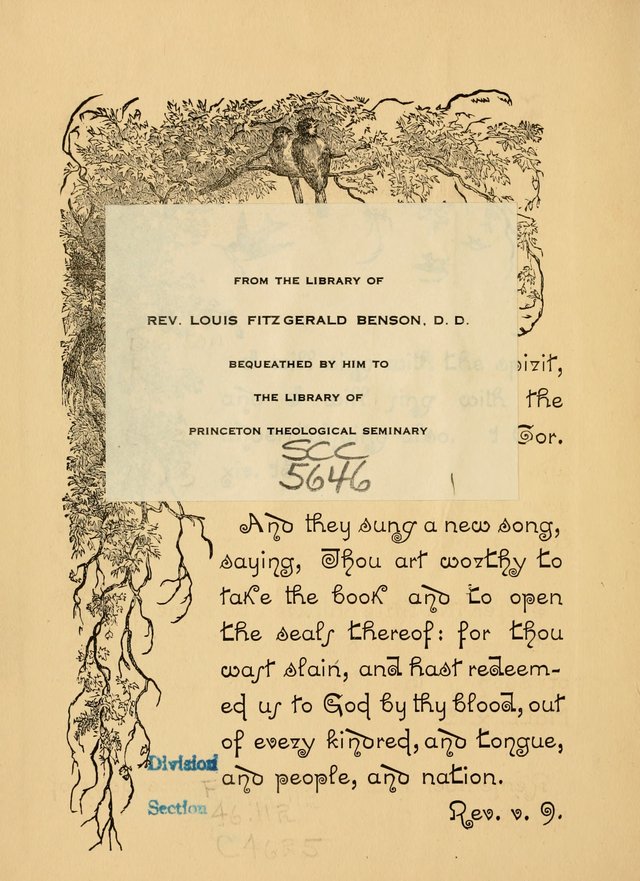 FROM THE LIBRARY OF
REV. LOUIS FITZGERALD BENSON, D. D.
BEQUEATHED BY HIM TO
THE LIBRARY OF
PRINCETON THEOLOGICAL SEMINARY
SCC
5646
with the spirit,
ing with the
Cor.
And they sung a new song,
saying, Thou art worthy to
take the book and to open
the seals thereof: for thou
wast slain, and hast redeem-
ed us to God by thy blood, out
of every kindred, and tongue,
and people, and nation.
Rev. v. 9.
Division
Section